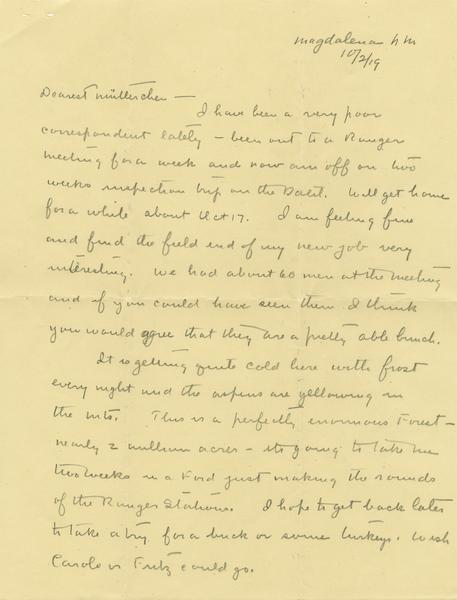 Magdalena N M
10/2/19
Dearest Mütterchen —
I have been a very poor
correspondent lately — been out to a Ranger
meeting for a week and now am off on two
weeks inspection trip on the Datil. Will get home
for a while about Oct 17. I am feeling fine
and find the field end of my new job very
interesting. We had about 60 men at the meeting
and if you could have seen them I think
you would agree that they are a pretty able bunch.
It is getting quite cold here with frost
every night and the aspens are yellowing in
the mts. This is a perfectly enormous Forest —
nearly 2 million acres — its going to take me
two weeks in a Ford just making the rounds
of the Ranger Stations. I hope to get back later
to take a try for a buck or some turkeys. Wish
Carolo or Fritz could go.